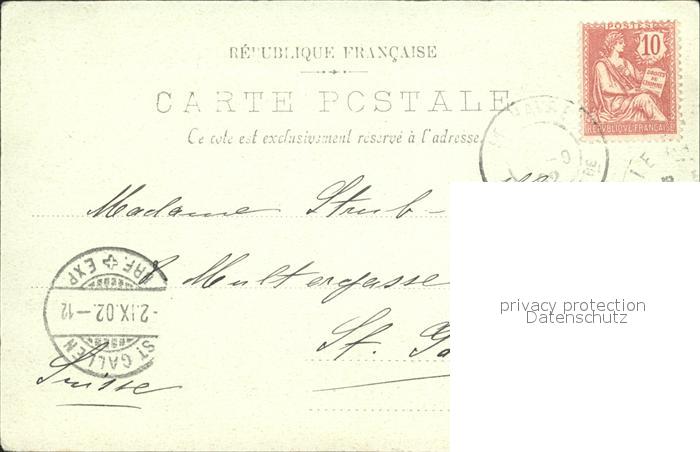 POSTES
10
DROITS DE L'HOMME
REPUBLIQUE FRANÇAISE
RÉPUBLIQUE FRANÇAISE
CARTE POSTALE
Ce coté est exclusivement réservé à l'adresse
Madame Strub-
8 Multergasse
St. Ga
Suisse
BRF. EXP.
-2.IX.02.-12
ST. GALLEN
privacy protection
Datenschutz